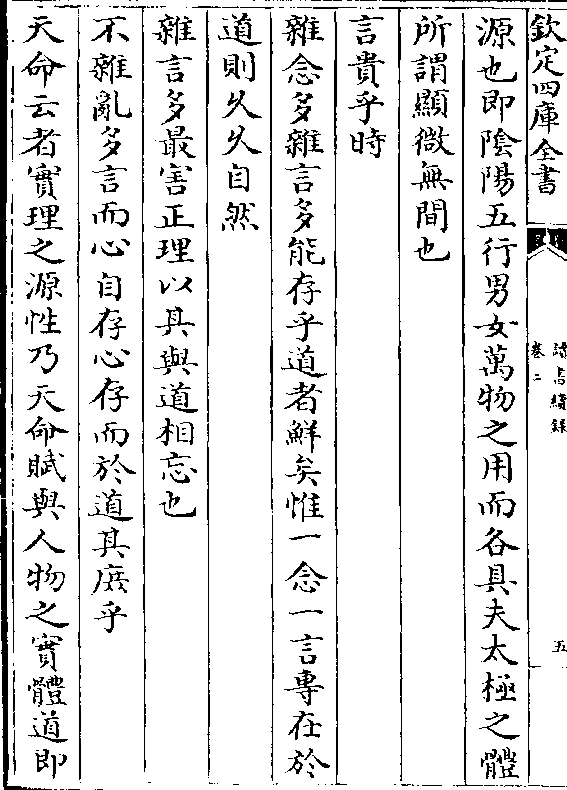 欽定四庫全書
讀書續錄
卷二
五
源也即陰陽五行男女萬物之用而各具夫太極之體
所謂顯微無間也
言貴乎時
雜念多雜言多能存乎道者鮮矣惟一念一言專在於
道則乆乆自然
雜言多最害正理以其與道相忘也
不雜亂多言而心自存心存而於道其庶乎
天命云者實理之源性乃天命賦與人物之實體道即